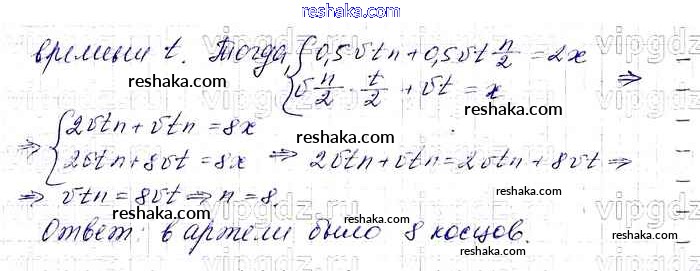 reshaka.com
времени t. Тогда { 0,5 v t n + 0,5 v t n/2 = 2x
v n/2 · t/2 + v t = x ⇒
reshaka.com
⇒ { 2vtn + vtn = 8x
2vtn + 8vt = 8x ⇒ 2vtn + vtn = 2vtn + 8vt ⇒
reshaka.com reshaka.com
⇒ vtn = 8vt ⇒ n = 8.
reshaka.com
Ответ: в артели было 8 косцов.
reshaka.com